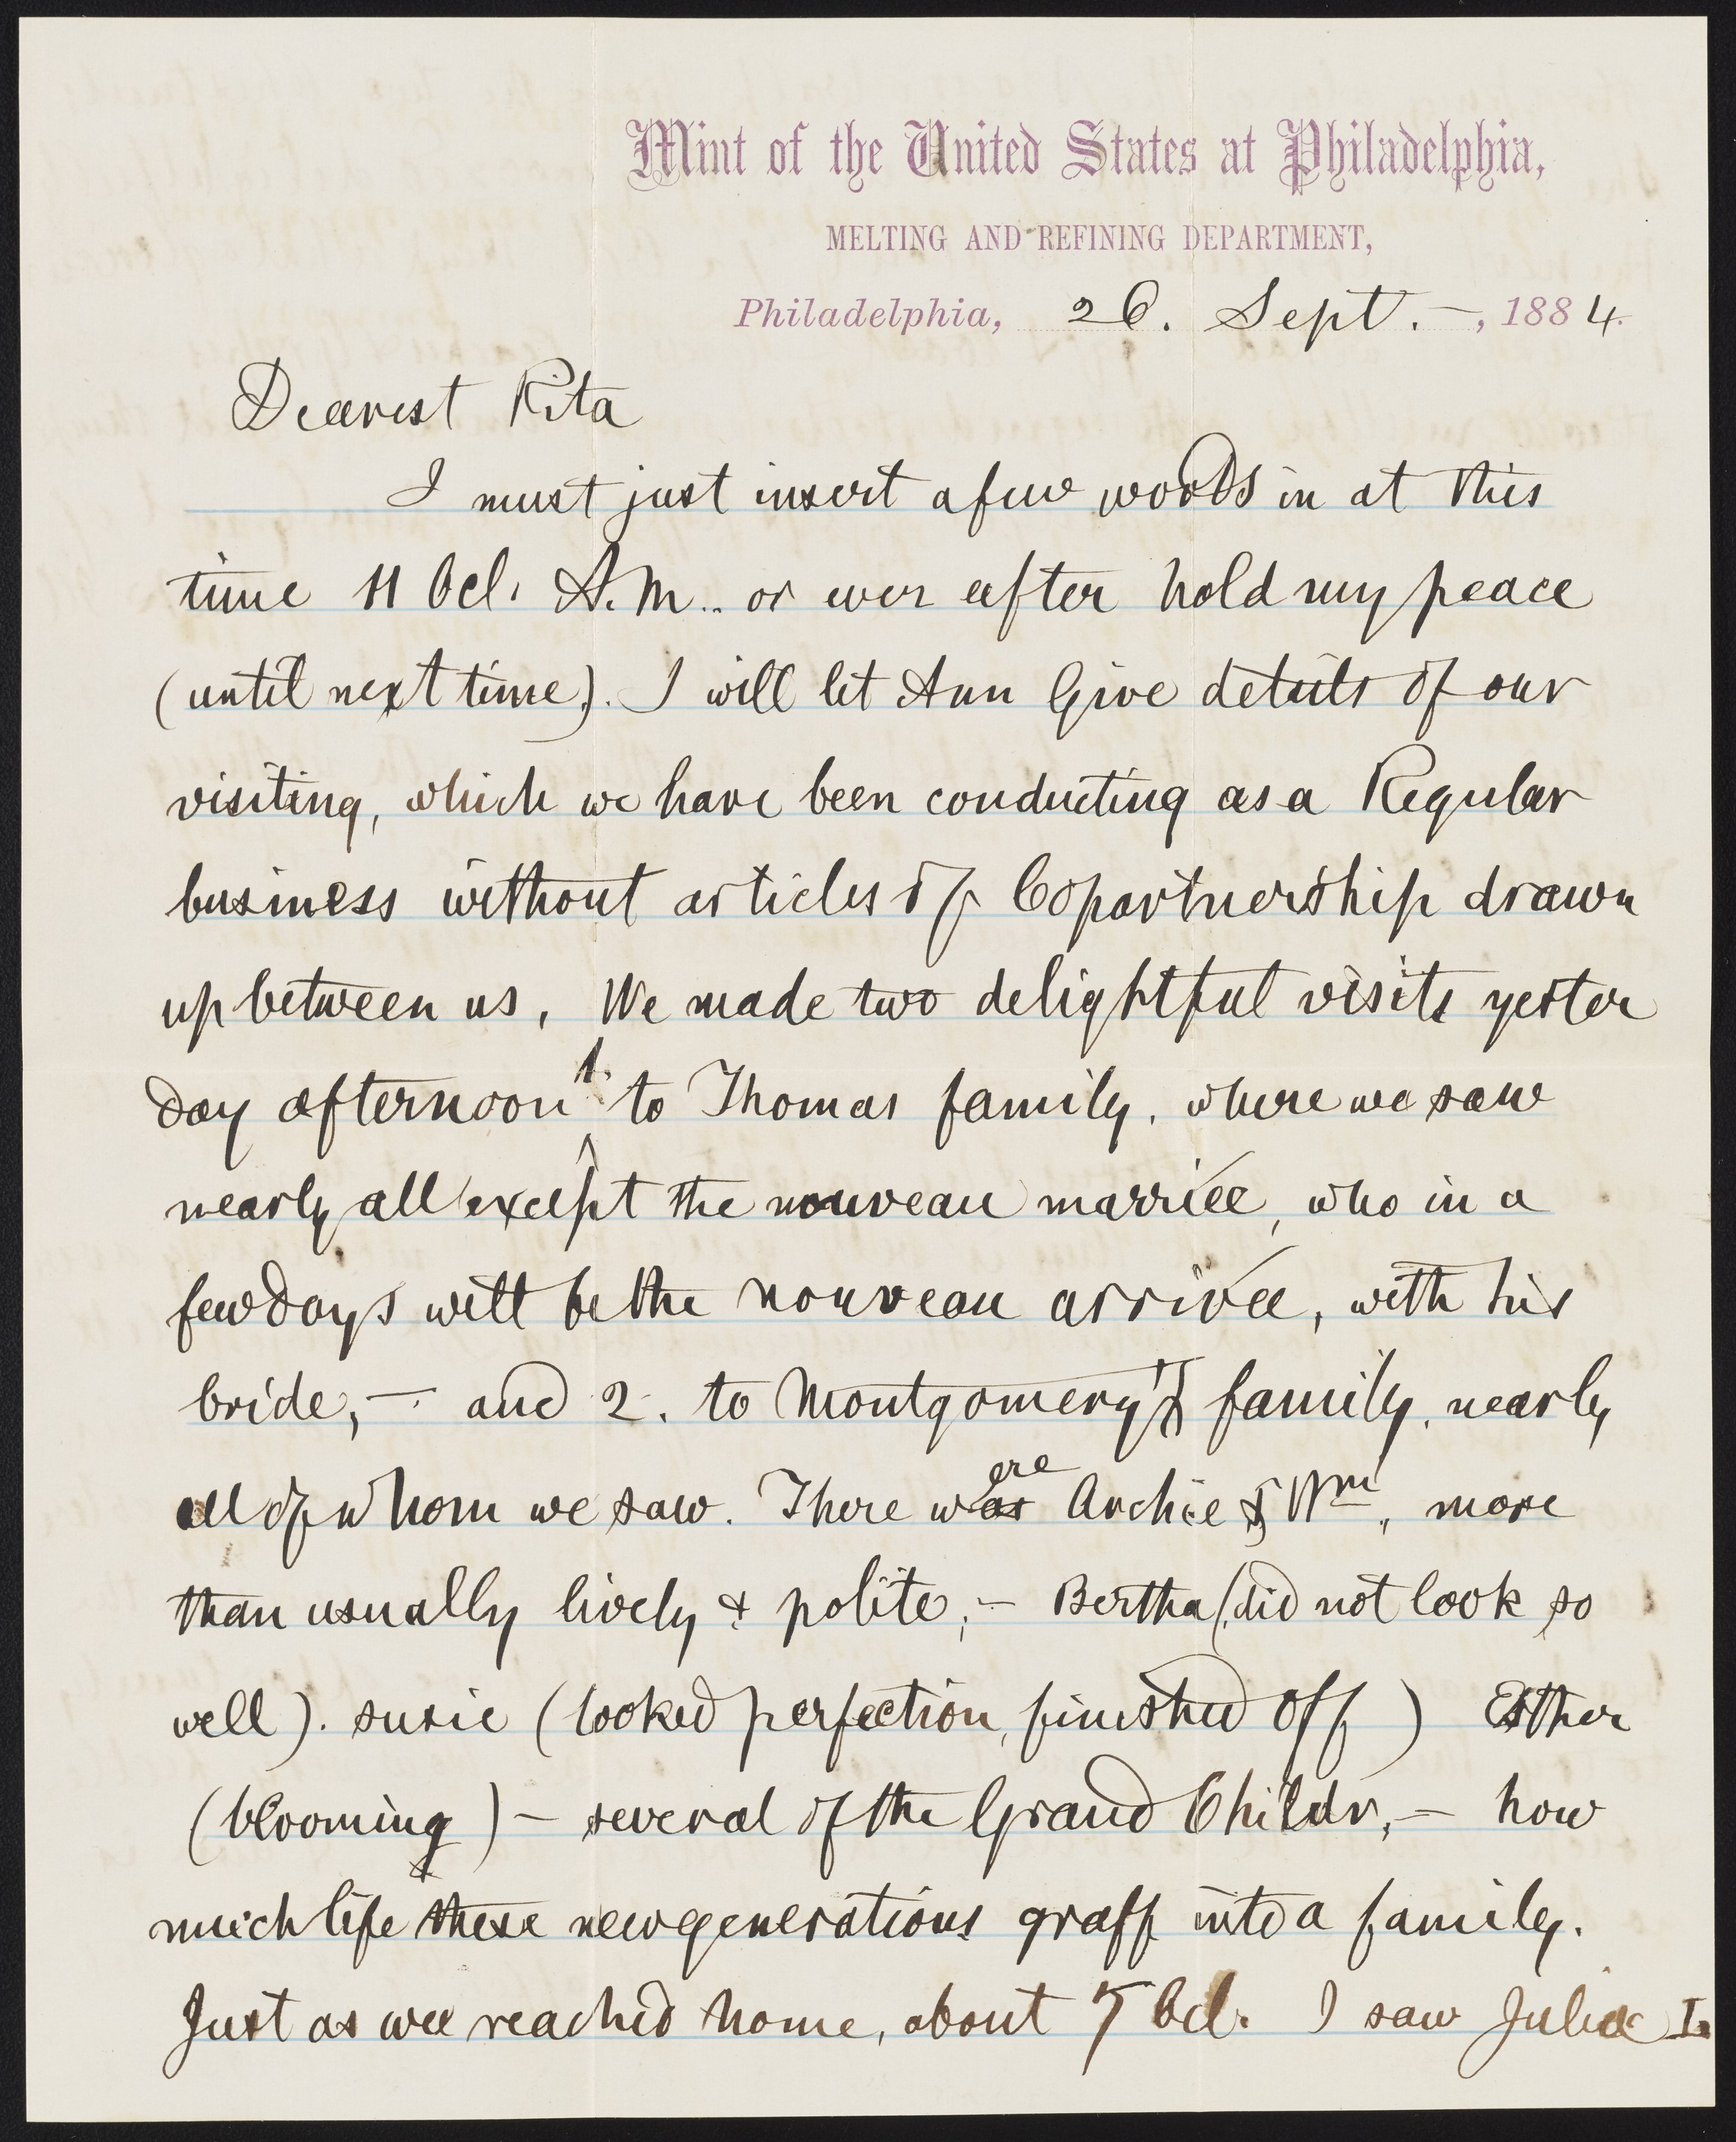 Mint of the United States at Philadelphia,
MELTING AND REFINING DEPARTMENT,
Philadelphia, 26. Sept. —, 1884.
Dearest Rita
I must just insert a few words in at this
time 11 Ocl. A.M.. or ever after hold my peace
(until next time). I will let Ann Give details of our
visiting, which we have been conducting as a Regular
business without articles of Copartnership drawn
up between us, We made two delightful visits yester
day afternoon 1. to Thomas family, where we saw
nearly all except the nouveau marriée, who in a
few days will be the nouveau arrivée, with his
bride, — and 2. to Montgomery's family, nearly
all of whom we saw. There were Archie & Wm, more
than usually lively & polite, — Bertha (did not look so
well). Susie (looked perfection, finished off) Esther
(blooming) — several of the Grand Childr, — how
much life these new generations graff into a family.
Just as we reached home, about 5 Ocl. I saw Julia L.